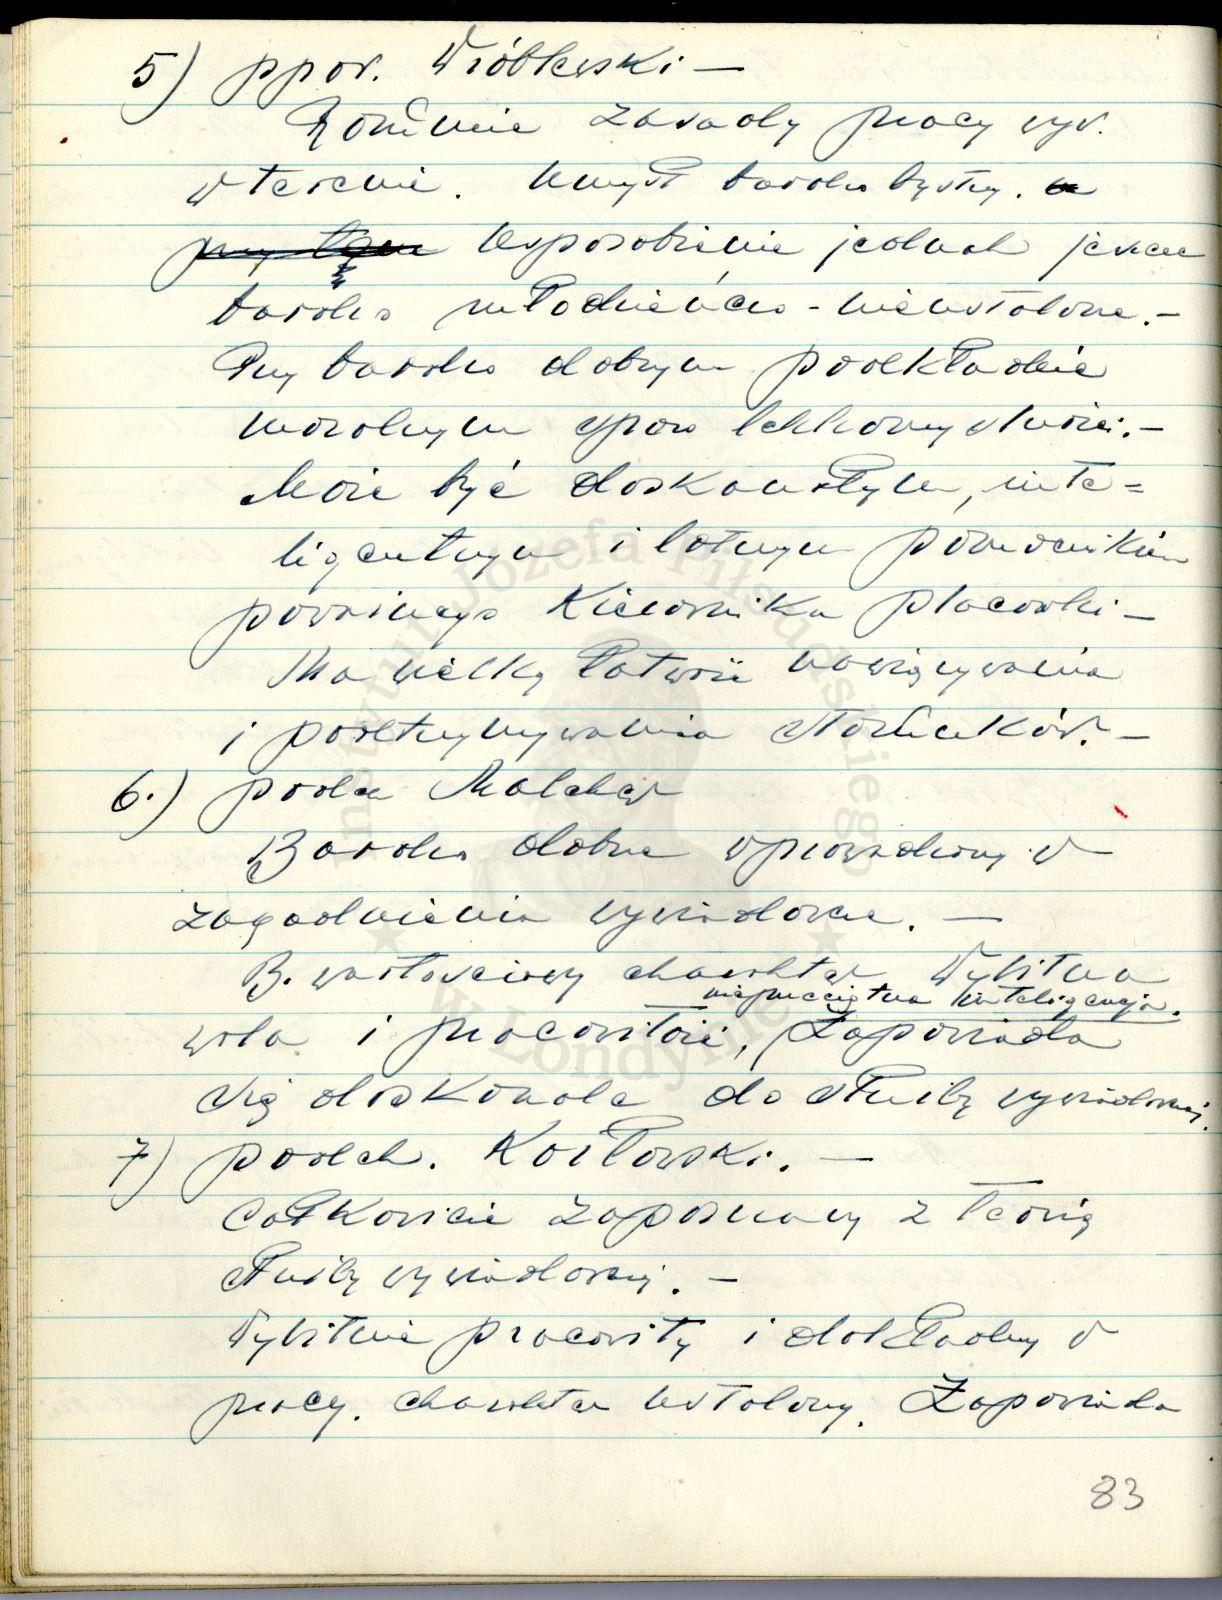 5) ppor. Wróblewski —
Rozumie zasady pracy wyw.
w terenie. Umysł bardzo bystry.
przy tym Usposobienie jednak jeszcze
bardzo młodzieńcze - nieustalone. —
Przy bardzo dobrym podkładzie
moralnym sporo lekkomyślności. —
Może być doskonałym, inte=
ligentnym i lotnym pomocnikiem
poważnego Kierownika placówki —
Ma wielką łatwość nawiązywania
i podtrzymywania stosunków. —
6.) podch Malcher
Bardzo dobrze wprowadzony w
zagadnienia wywiadowcze. —
B. wartościowy charakter, Wybitna
nieprzeciętna inteligencja.
wola i pracowitość, Zapowiada
się doskonale do służby wywiadowczej.
7) podch. Kozłowski. —
Całkowicie zapoznany z teorią
służby wywiadowczej. —
Wybitnie pracowity i dokładny w
pracy. charakter ustalony. Zapowiada
83
Instytut Józefa Piłsudskiego
w Londynie